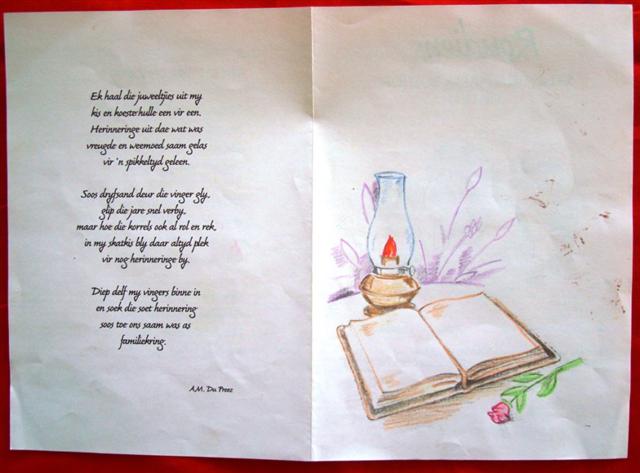 Ek haal die juweeltjies uit my
kis en koester hulle een vir een.
Herinneringe uit dae wat was
vreugde en weemoed saam gelas
vir 'n spikkeltyd geleen.
Soos dryfsand deur die vinger gly,
glip die jare snel verby,
maar hoe die korrels ook al rol en rek,
in my skatkis bly daar altyd plek
vir nog herinneringe by.
Diep delf my vingers binne in
en soek die soet herinnering
soos toe ons saam was as
familiekring.
A.M. Du Preez